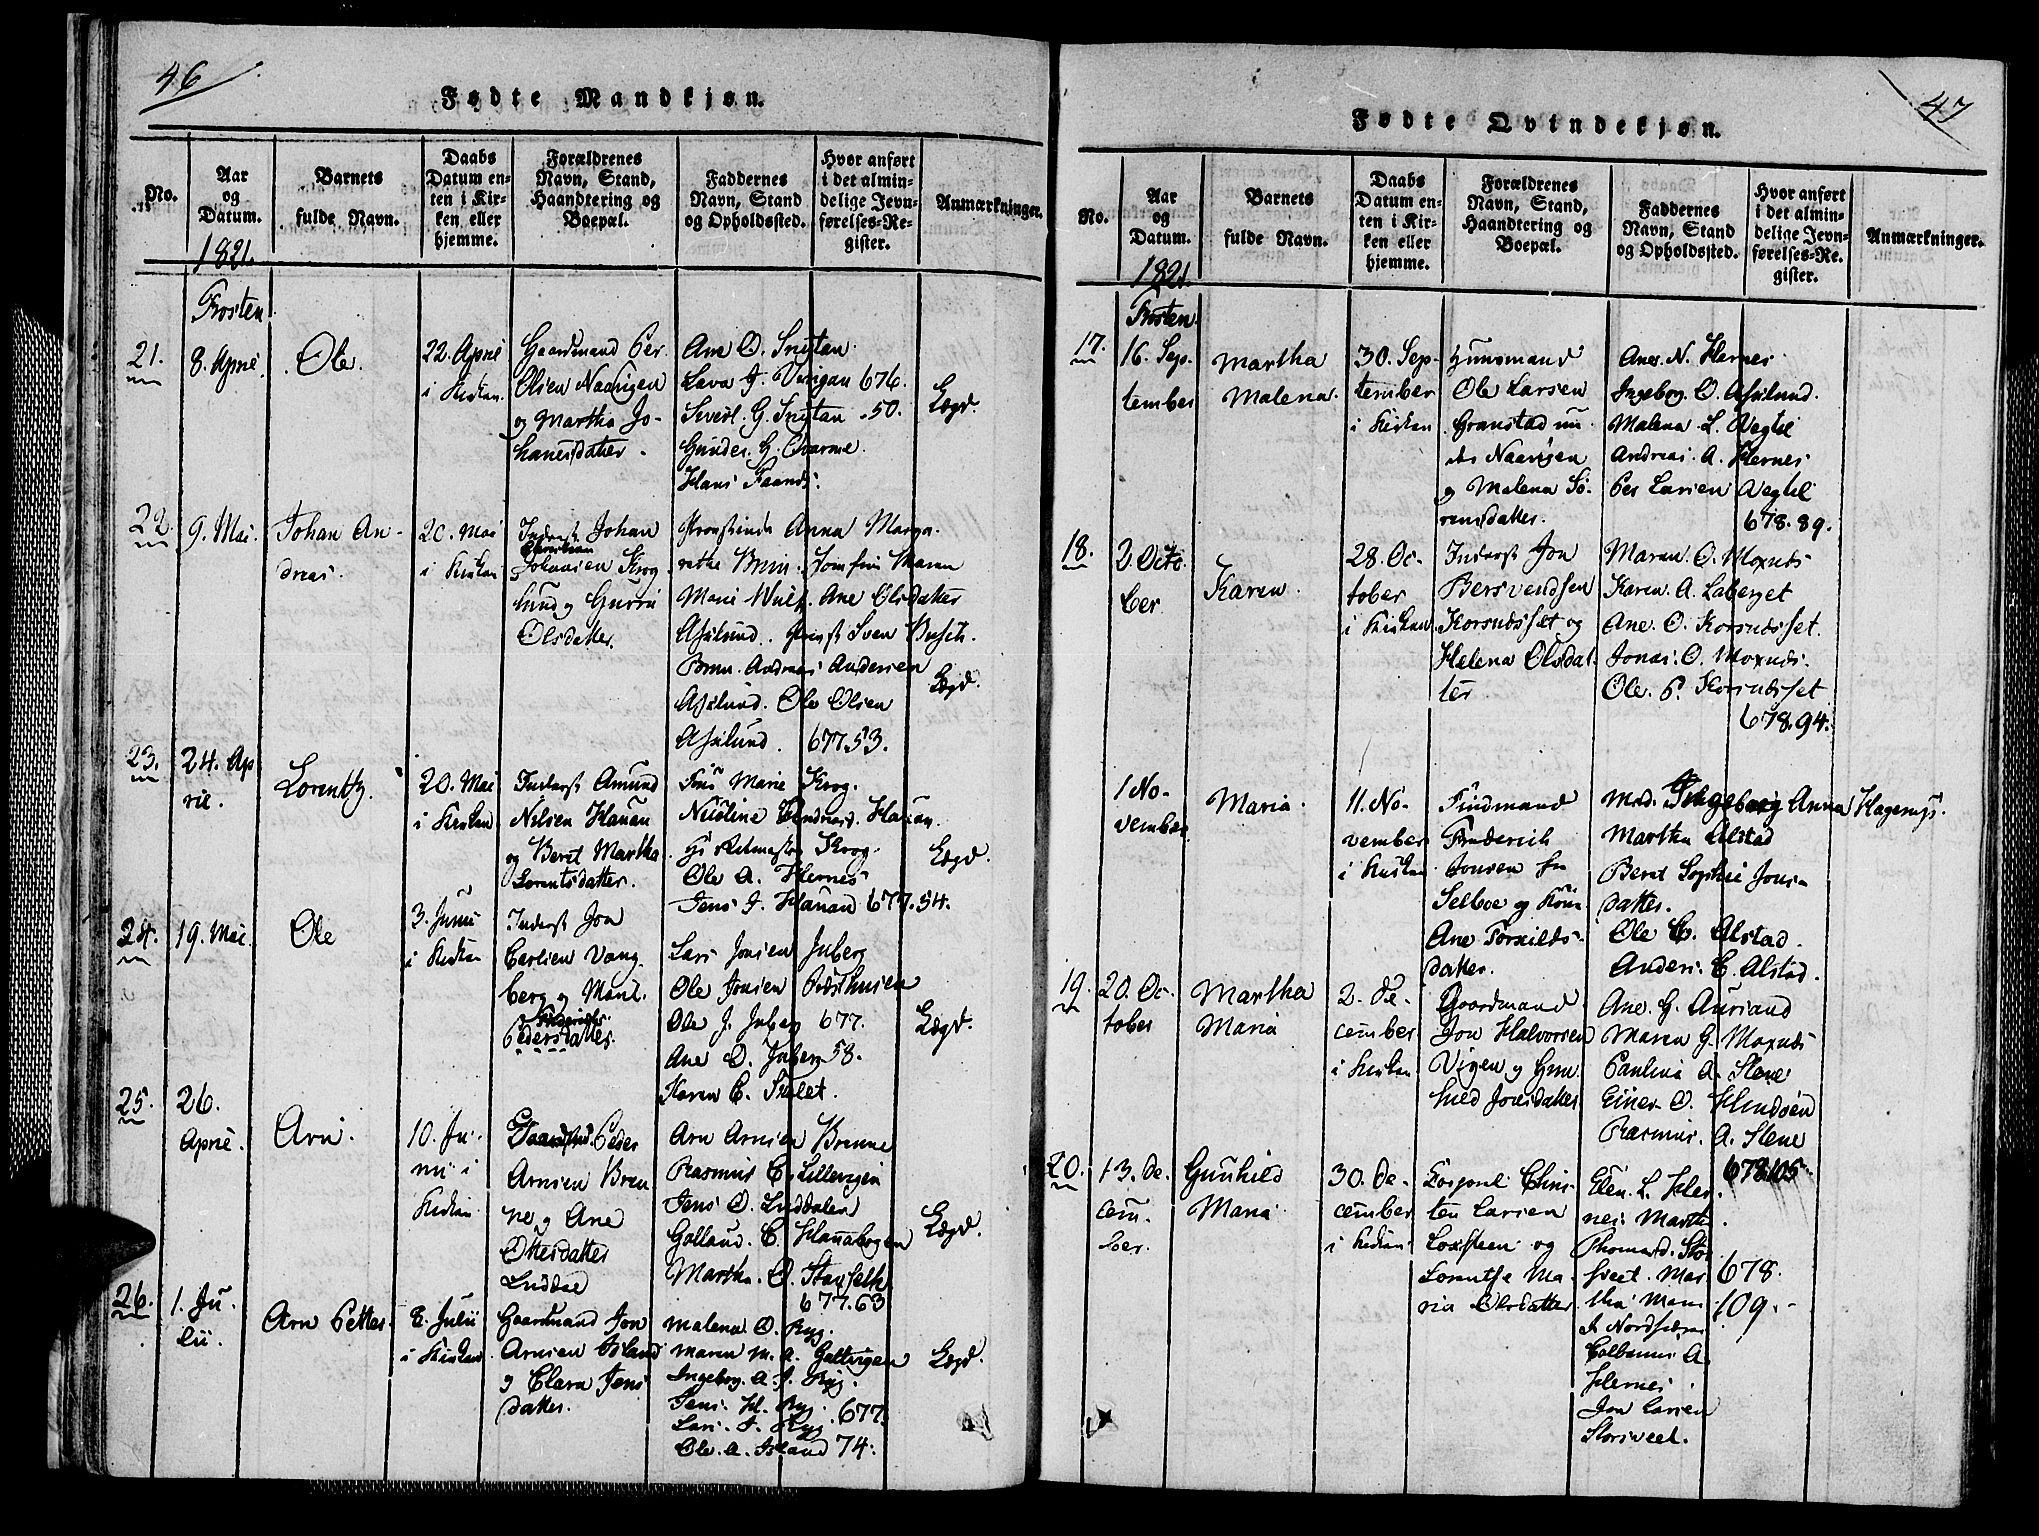 46
Fødte Mandkjøn.
No.
Aar
og
Datum.
Barnets
fulde Navn.
Daabs
Datum en-
ten i Kir-
ken eller
hjemme.
Forældrenes
Navn, Stand,
Haandtering og
Boepæl.
Faddernes
Navn, Stand
og Opholdssted.
Hvor anført
i det almin-
delige Jevn-
førelses-Re-
gister.
Anmærkninger.
1821.
Frosten
21.
8. April
Ole.
22. April
i Kirken.
Gaardmand Per
Olsen Naavigen
og Martha Jo-
hanesdatter.
Ane O.
Lava J. 676.
G. 50.
Gunder G.
Hans
Lægd.
22.
9. Mai.
Johan An-
dreas.
20. Mai
i Kirken
Inderst Johan
Christian
Johansen Krog
lund og Gurru
Olsdatter.
Anna Marga-
rethe Brun. Jomfru Maren
Marie Wulf. Ane Olsdatter
Aasilund. Sven Busch.
Brun. Andreas Andersen
Aasilund. Ole Olsen
Aasilund. 677.53.
Lægd.
23.
24. Ap
ril.
Lorentz.
20. Mai
i Kirken
Inderst Amund
Nilsen Hanan
og Beret Martha
Lorentsdatter.
Frue Marie Krog.
Nicoline Hanan.
Hr Ritmester Krog.
Ole A. Hernes
Jens J. Hanan 677.54.
Lægd.
24.
19. Mai.
Ole
3. Junii
i Kirken
Inderst Jon
Carlsen Vang
berg og Marit
Pedersdatter.
Lars Jonsen Juberg
Ole Jonsen Præsthusen
Ole J. Juberg 677.
Ane O. Juberg 58.
Karen C.
Lægd.
25.
26.
April.
Arn.
10. Ju-
nii i
Kirken
Peder
Arnsen Bren
ne og Ane
Ottersdatter
Arn Arnsen Brenne
Rasmus C. Lillevigen
Jens O.
C. Hannabogen
Martha. O.
677.63
Lægd.
26.
1. Ju-
lii.
Arn Petter.
8. Julii
i Kirken
Gaardmand Jon
Arnsen Island
og Clara Jens
datter.
Malena O. Ryg.
Maren M. A. Galtvigen
Ingeborg. A. J. Ryg.
Jens. H. Ryg. 677
Lars. J. Ryg
Ole. A. Island 74.
Lægd.
47
Fødte Qvindekjøn.
No.
Aar
og
Datum.
Barnets
fulde Navn.
Daabs
Datum en-
ten i Kir-
ken eller
hjemme.
Forældrenes
Navn, Stand,
Haandtering og
Boepæl.
Faddernes
Navn, Stand
og Opholdssted.
Hvor anført
i det almin-
delige Jevn-
førelses-Re-
gister.
Anmærkninger.
1821.
Frosten.
17.
16. Sep-
tember
Martha
Malena.
30. Sep-
tember
i Kirken
Huusmand
Ole Larsen
Granstad un-
der Naavigen
og Malena Sø-
rensdatter.
Ane. N. Hernes
Ingeborg. O. Aasilund.
Malena L. Vegtel
Andreas. A. Hernes
Per Larsen Vegtel
678.89.
18.
2. Octo-
ber
Karen.
28. Oc-
tober
i Kirken
Inderst Jon
Bersvendsen
Korsnesset og
Helena Olsdat-
ter
Maren. O. Moxnes
Karen. A. Laberget
Ane. O. Korsnesset.
Jonas. O. Moxnes.
Ole. P. Korsnesset
678.94.
1 No-
vember
Maria.
11. No-
vember
i Kirken
Findmand
Frederich
Jonsen fra
Selboe og Kone
Ane Torkilds-
datter.
Mad. Ingeborg Anna Hagenys.
Martha Alstad
Beret Sophie Jons-
datter.
Ole C. Alstad.
Anders. C. Alstad.
19.
20. Oc-
tober
Martha
Maria
2. De-
cember
i Kirken
Gaardmand
Jon Halvorsen
Vigen og Gun-
hild Jonsdatter
Ane. G. Aursand
Maren G. Moxnes
Paulina A. Stene
Einer. O. Hindøen
Rasmus. A. Stene
678.105
20.
13. De-
cem-
ber.
Gunhild
Maria
30. De-
cember
i Kirken
Corporal Chris-
ten Larsen
Loxsteen og
Lorentse Ma-
ria Olsdatter
Elen. L. Her-
nes. Martha
Thomasd. Stor
sveet. Mar
tha
Colbanus A.
Hernes.
Jon Larsen
Storsveet.
678.
109.